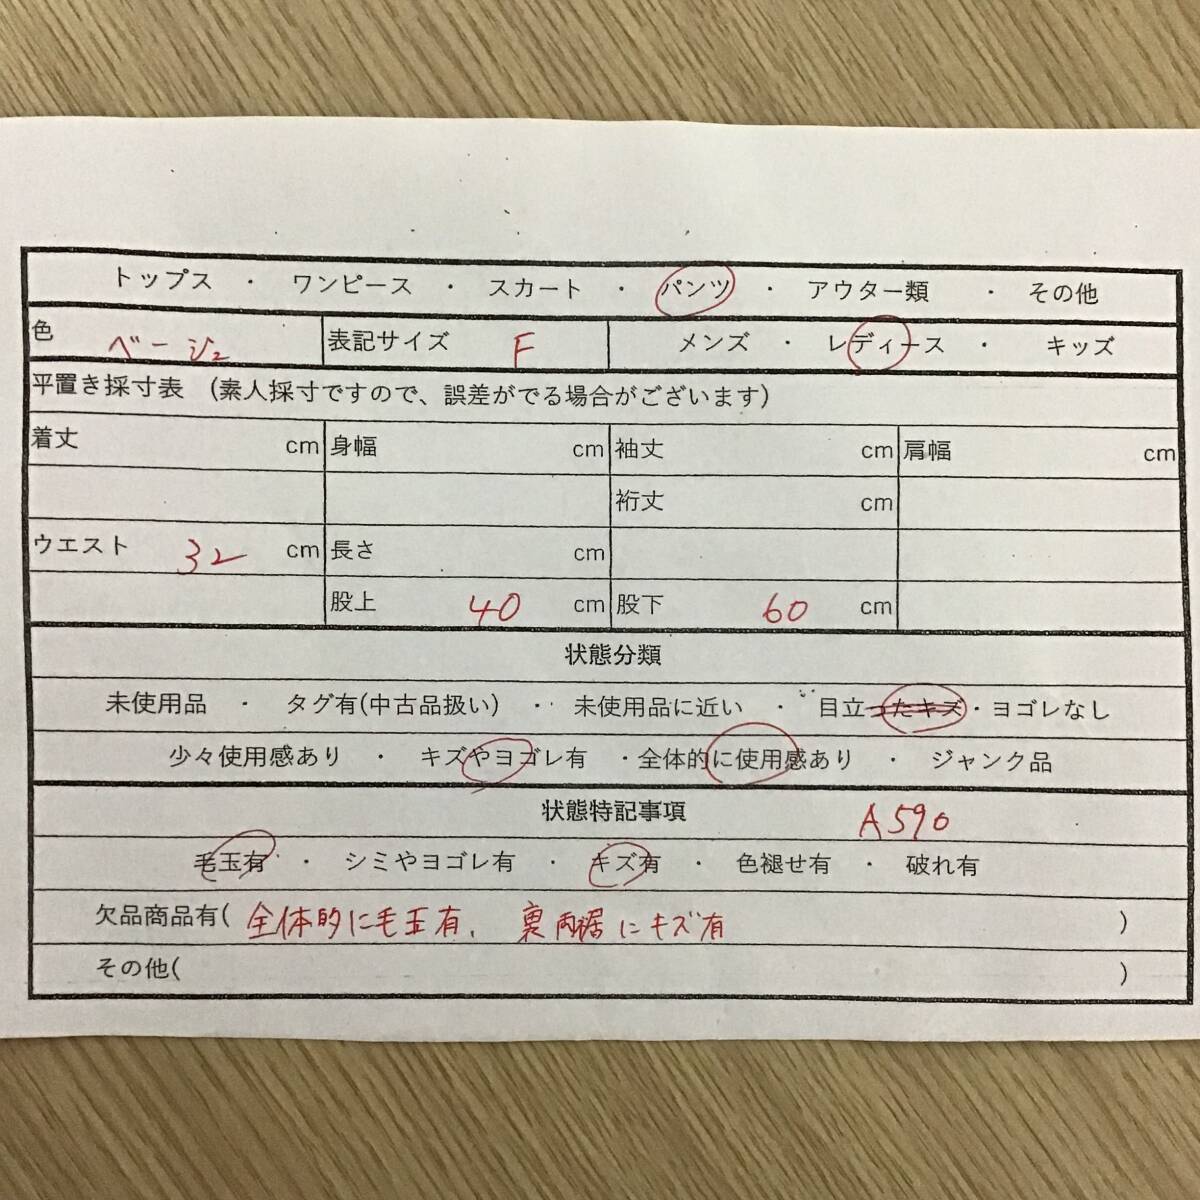 トップス ・ ワンピース ・ スカート ・ パンツ ・ アウター類 ・ その他
色 ベージュ 表記サイズ F メンズ ・ レディース ・ キッズ
平置き採寸表 (素人採寸ですので、誤差がでる場合がございます)
着丈 cm 身幅 cm 袖丈 cm 肩幅 cm
裄丈 cm
ウエスト 32 cm 長さ cm
股上 40 cm 股下 60 cm
状態分類
未使用品 ・ タグ有(中古品扱い) ・ 未使用品に近い ・ 目立ったキズ・ヨゴレなし
少々使用感あり ・ キズやヨゴレ有 ・全体的に使用感あり ・ ジャンク品
状態特記事項 A590
毛玉有 ・ シミやヨゴレ有 ・ キズ有 ・ 色褪せ有 ・ 破れ有
欠品商品有( 全体的に毛玉有、裏両裾にキズ有 )
その他( )